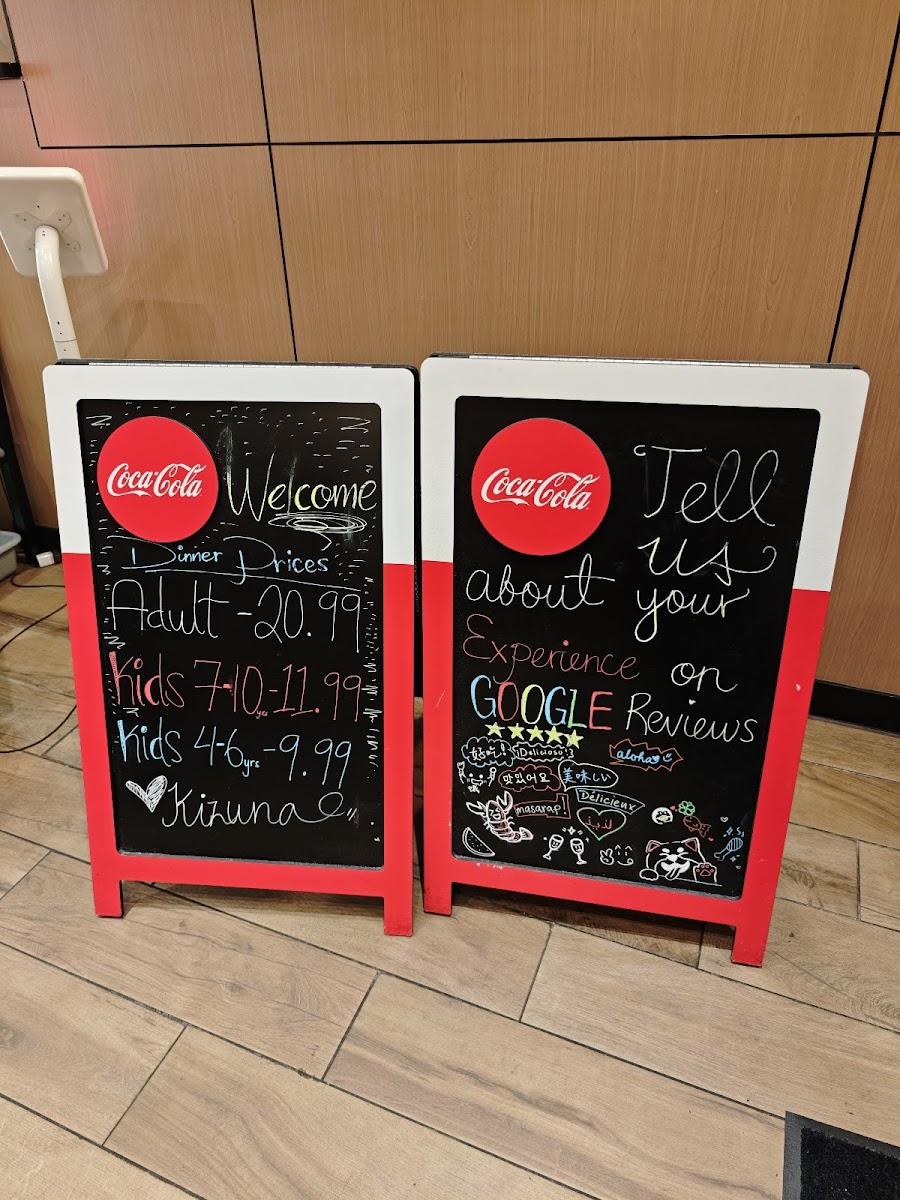 Coca-Cola
Welcome
Dinner Prices
Adult - 20.99
Kids 7-10 yrs - 11.99
Kids 4-6 yrs - 9.99
Kizuna
Coca-Cola
Tell
us
about your
Experience on
GOOGLE Reviews
好吃! ¡Delicioso! aloha
맛있어요 美味しい
masarap! Délicieux
لذيذ